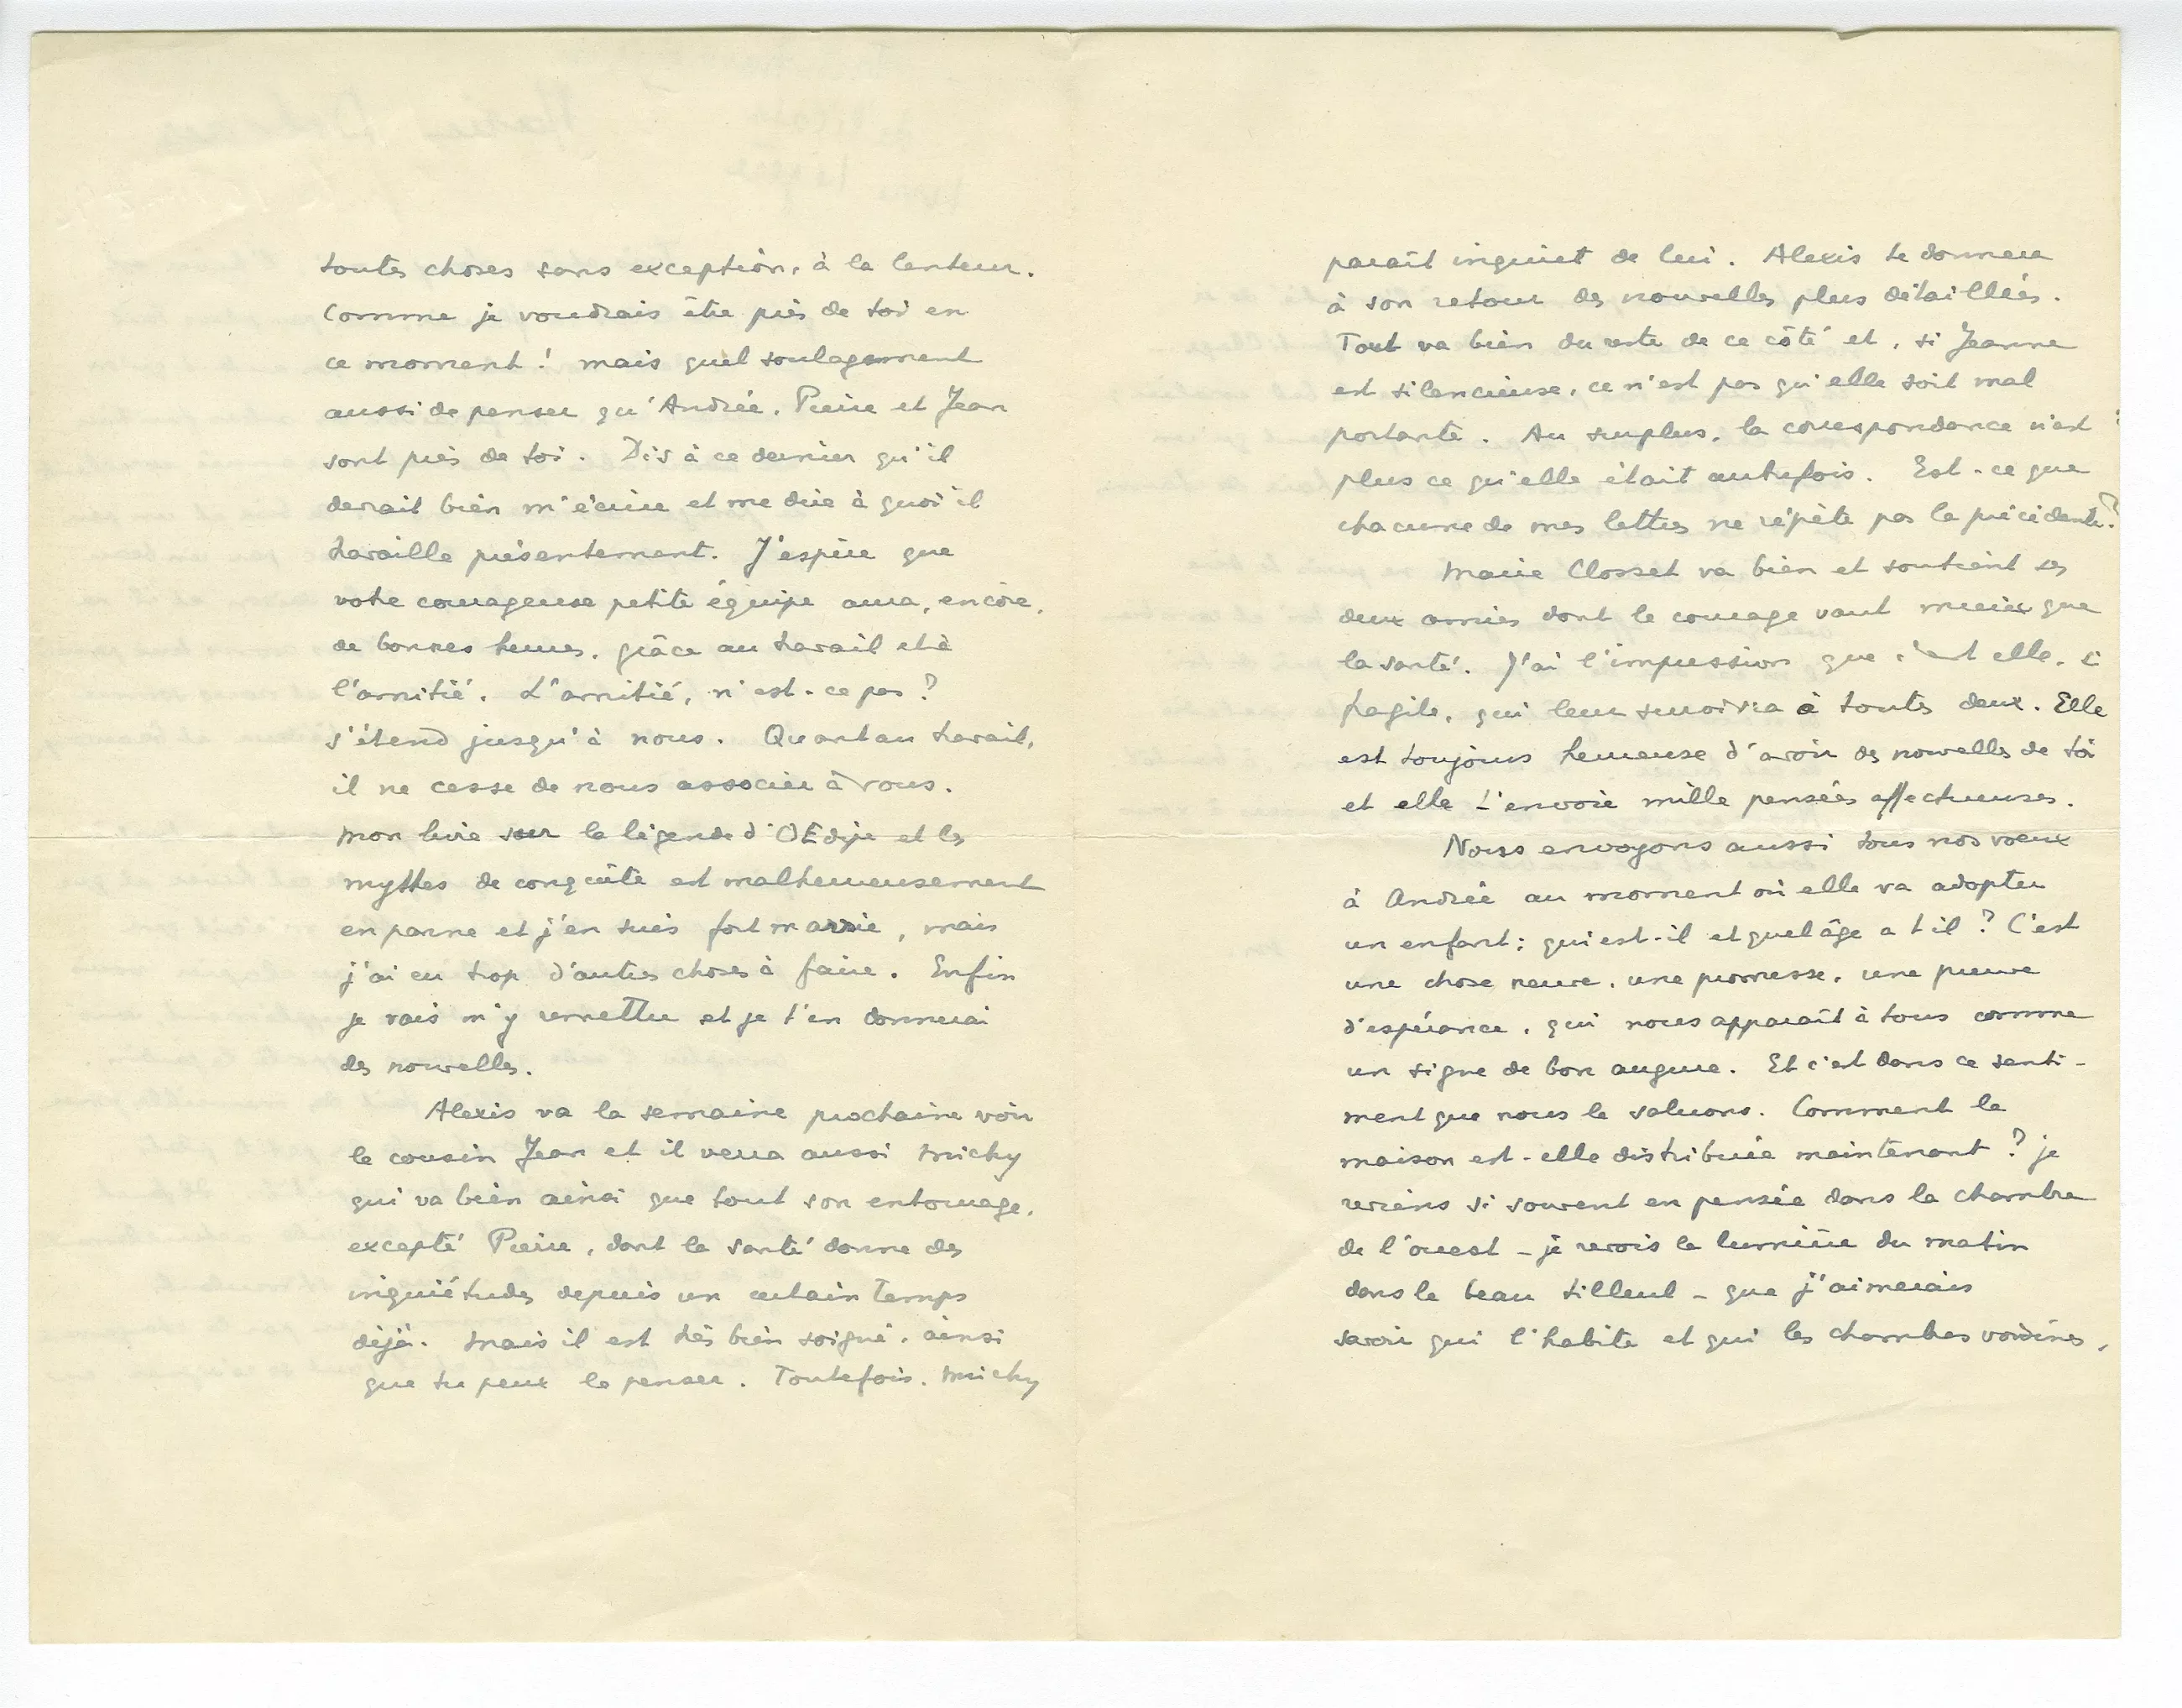 toutes choses sans exception, à la lenteur.
Comme je voudrais être près de toi en
ce moment ! mais quel soulagement
aussi de penser qu'Andrée, Pierre et Jean
sont près de toi. Dis à ce dernier qu'il
devrait bien m'écrire et me dire à quoi il
travaille présentement. J'espère que
votre courageuse petite équipe aura, encore,
de bonnes heures, grâce au travail et à
l'amitié. L'amitié, n'est-ce pas ?
s'étend jusqu'à nous. Quant au travail,
il ne cesse de nous associer à vous.
Mon livre sur la légende d'OEdipe et les
mythes de conquête est malheureusement
en panne et j'en suis fort marrie, mais
j'ai eu trop d'autres choses à faire. Enfin
je vais m'y remettre et je t'en donnerai
des nouvelles.
Alexis va la semaine prochaine voir
le cousin Jean et il verra aussi Michy
qui va bien ainsi que tout son entourage,
excepté Pierre, dont la santé donne des
inquiétudes depuis un certain temps
déjà. Mais il est très bien soigné, ainsi
que tu peux le penser. Toutefois, Michy
paraît inquiet de lui. Alexis te donnera
à son retour des nouvelles plus détaillées.
Tout va bien du reste de ce côté et, si Jeanne
est silencieuse, ce n'est pas qu'elle soit mal
portante. Au surplus, la correspondance n'est
plus ce qu'elle était autrefois. Est-ce que
chacune de mes lettres ne répète pas la précédente ?
Marie Closset va bien et soutient ses
deux amies dont le courage vaut mieux que
la santé. J'ai l'impression que c'est elle, si
fragile, qui leur survivra à toutes deux. Elle
est toujours heureuse d'avoir des nouvelles de toi
et elle t'envoie mille pensées affectueuses.
Nous envoyons aussi tous nos voeux
à Andrée au moment où elle va adopter
un enfant ; qui est-il et quel âge a t il ? C'est
une chose neuve, une promesse, une preuve
d'espérance, qui nous apparaît à tous comme
un signe de bon augure. Et c'est dans ce senti-
ment que nous le saluons. Comment la
maison est-elle distribuée maintenant ? je
reviens si souvent en pensée dans la chambre
de l'ouest - je revois la lumière du matin
dans le beau tilleul - que j'aimerais
savoir qui l'habite et qui les chambres voisines,